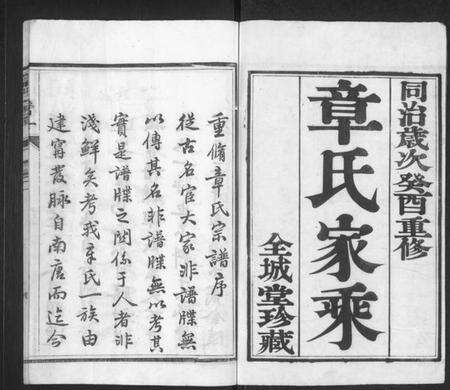 同治歲次癸酉重修
章氏家乘
全城堂珍藏
重脩章氏宗譜序
從古名宦大家非譜牒無
以傳其名非譜牒無以考其
實是譜牒之関係于人者非
淺鮮矣考我章氏一族由
建寗發脉自南唐而迄今